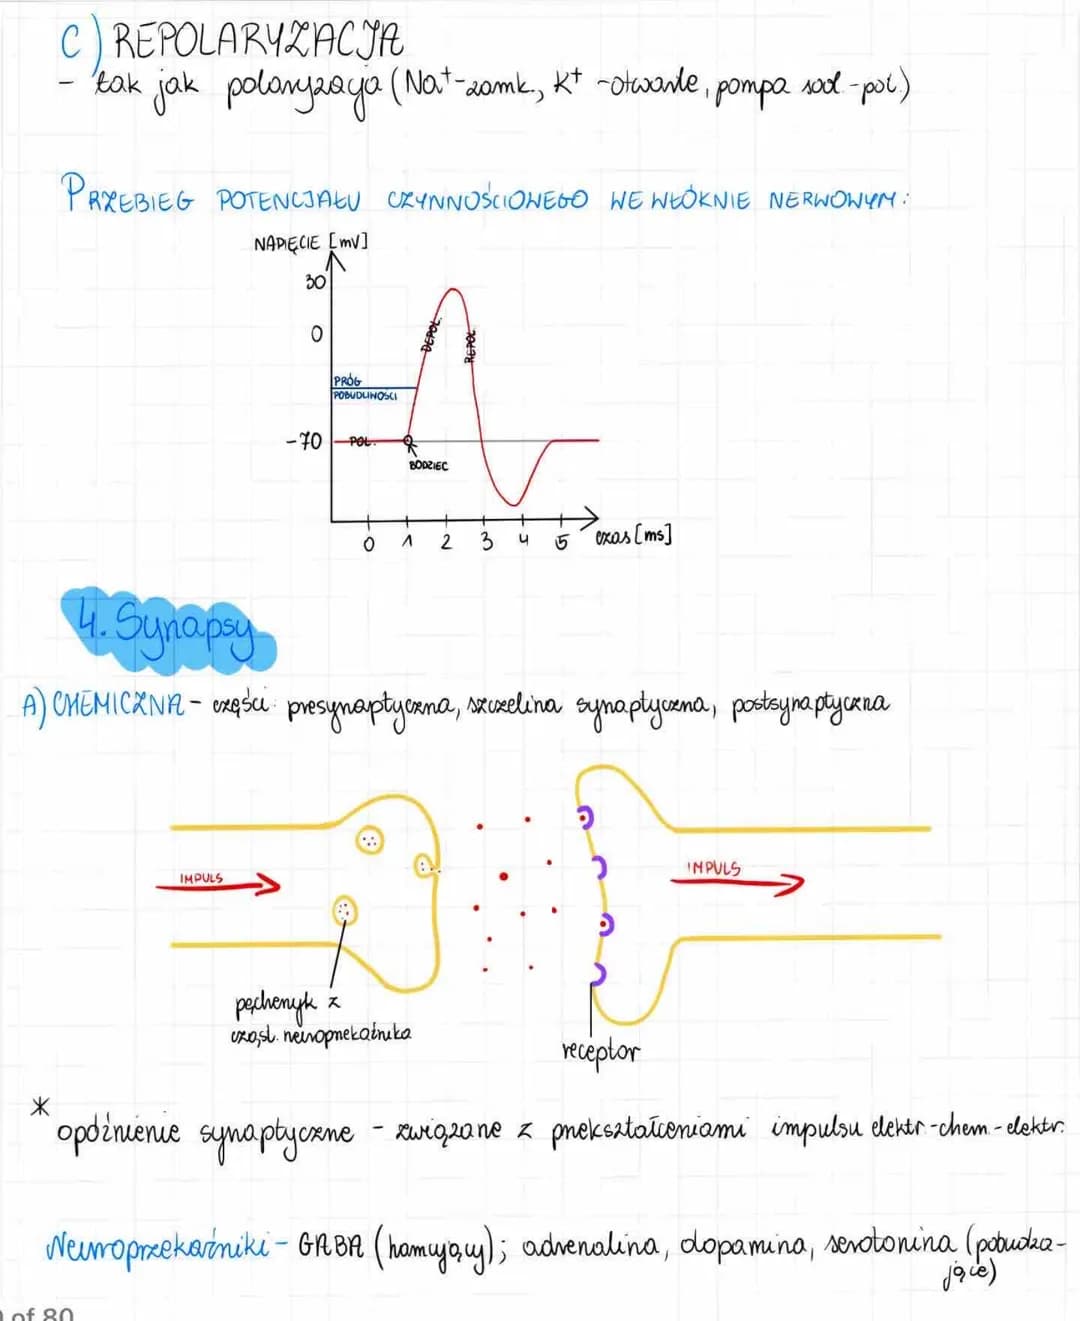 C) REPOLARYZACJA
- tak jak polaryzacja (Na+-zamk., K+ -otwarte, pompa sod.-pot.)
PRZEBIEG POTENCJAŁU CZYNNOŚCIOWEGO WE WŁÓKNIE NERWOWYM:
NAPIĘCIE [mV]
30
0
DEPOL.
REPOL.
PRÓG
POBUDLIWOŚCI
-70
POL.
BODZIEC
0 1 2 3 4 5 czas [ms]
4. Synapsy
A) CHEMICZNA - części: presynaptyczna, szczelina synaptyczna, postsynaptyczna
IMPULS
IMPULS
pęcherzyk z
cząst. neuroprzekaźnika
receptor
* opóźnienie synaptyczne - związane z przekształceniami impulsu elektr.-chem.-elektr.
Neuroprzekaźniki - GABA (hamujący); adrenalina, dopamina, serotonina (pobudza-
jące)
of 80